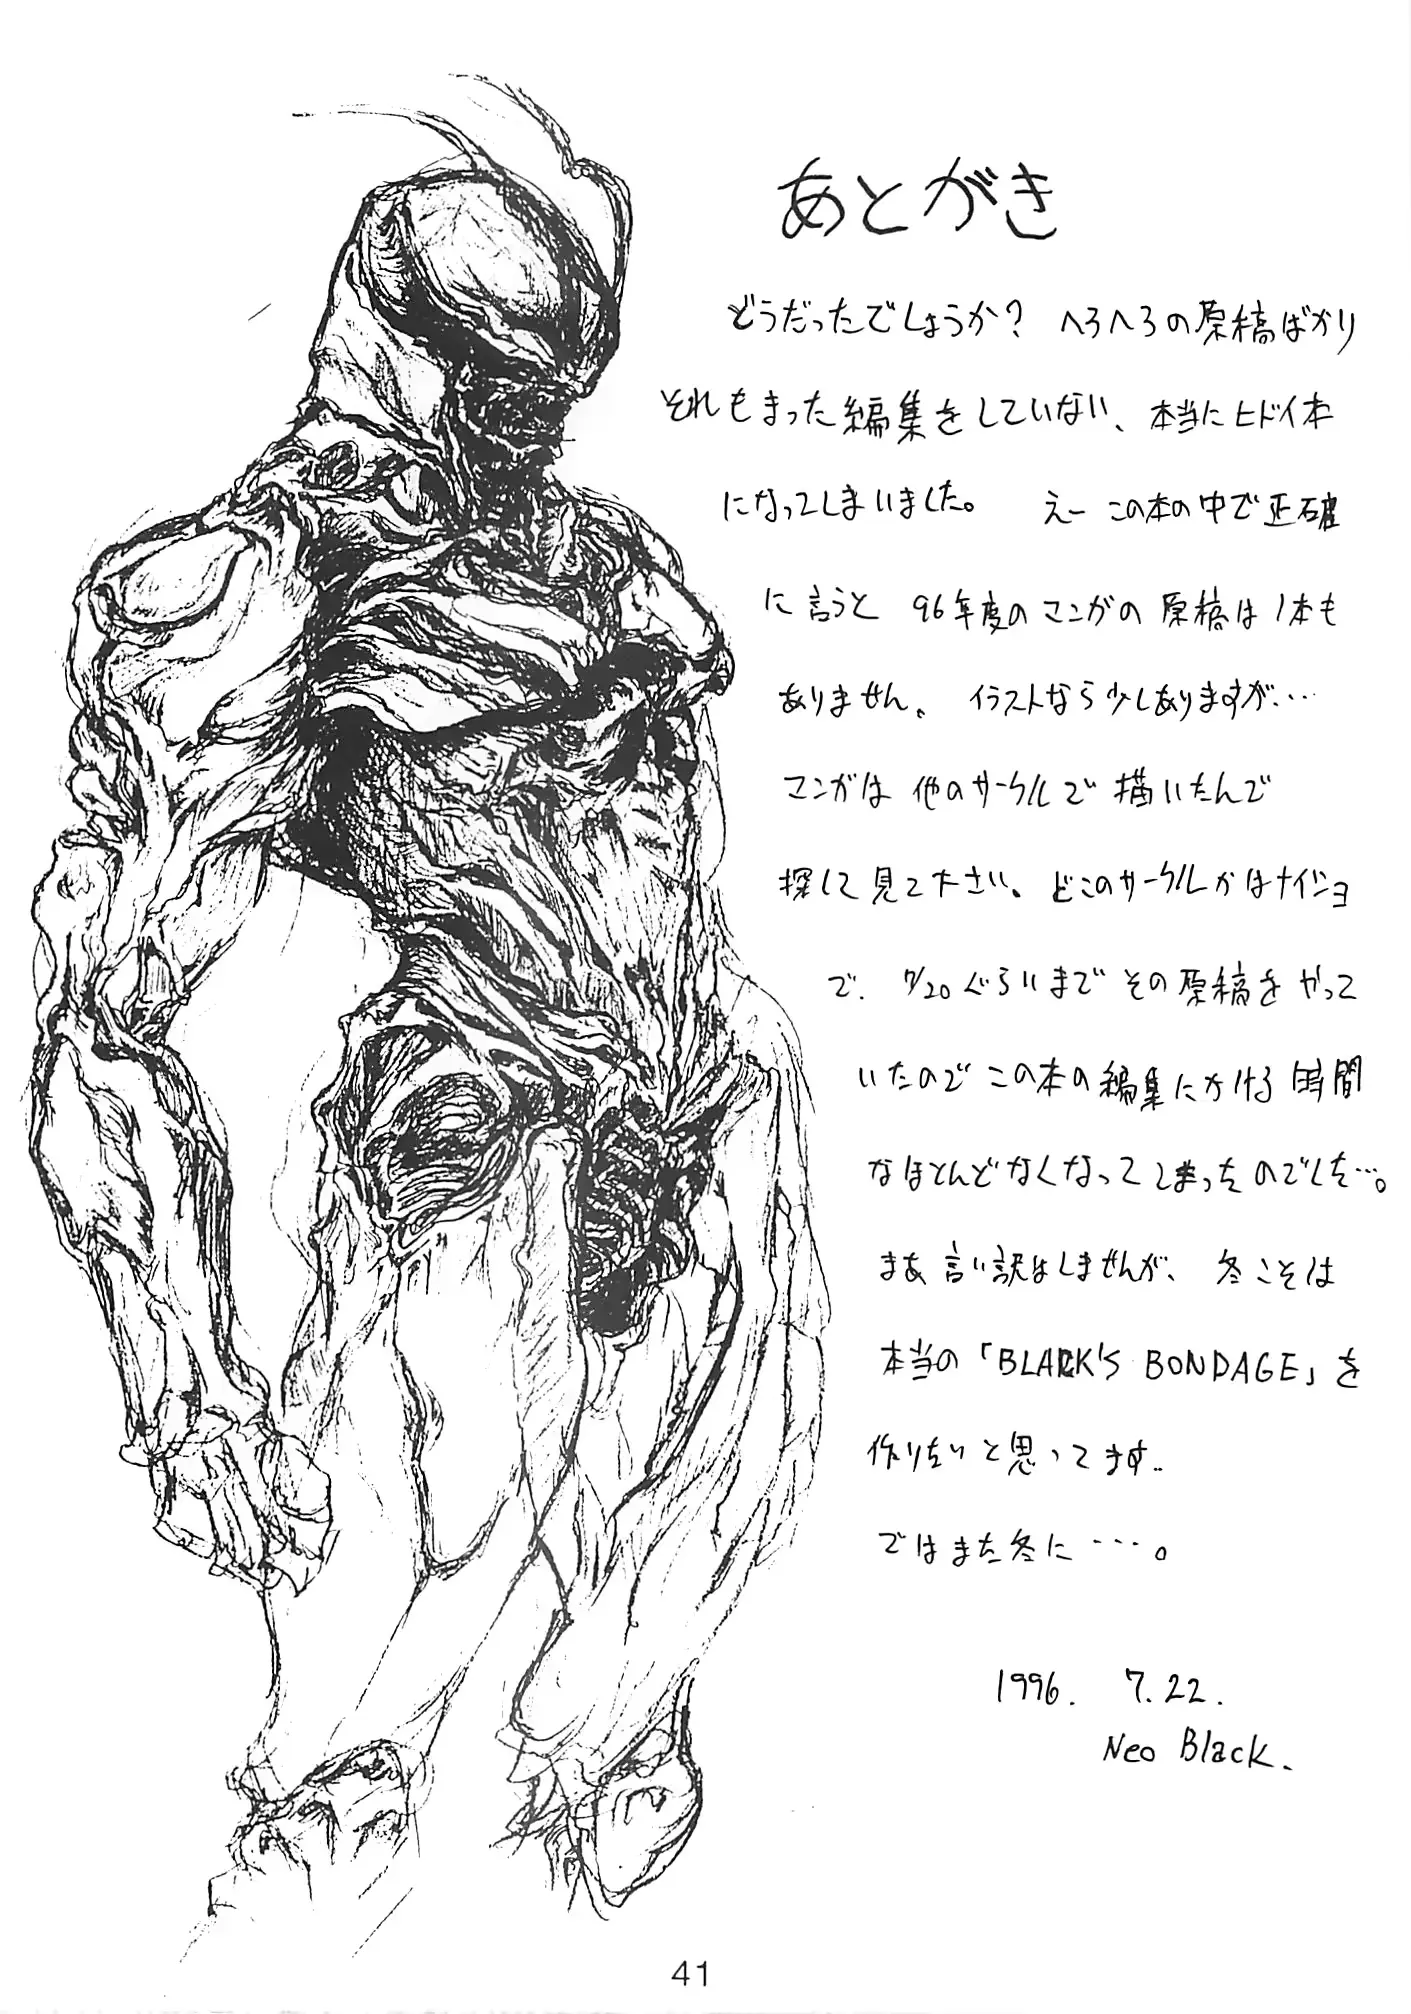 あとがき
どうだったでしょうか? へろへろの原稿ばかり
それもまった編集をしていない、本当にヒドイ本
になってしまいました。 えー この本の中で正確
に言うと 96年度のマンガの原稿は1本も
ありません。 イラストなら少しありますが…
マンガは他のサークルで描いたんで
探して見て下さい。どこのサークルかはナイショ
で. 7/20ぐらいまでその原稿をやって
いたのでこの本の編集にかける時間
なほとんどなくなってしまったのでした…。
まあ言い訳はしませんが、冬こそは
本当の「BLACK'S BONDAGE」を
作りたいと思ってます..
ではまた冬に …。
1996. 7.22.
Neo Black.
41